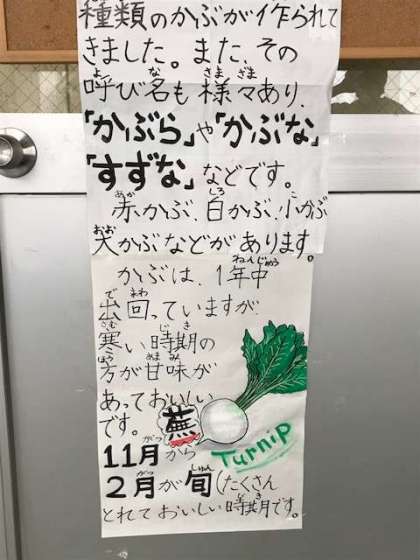 種類のかぶが作られて
きました。また、その
呼び名も様々あり、
「かぶら」や「かぶな」
「すずな」などです。
赤かぶ、白かぶ、小かぶ
大かぶなどがあります。
かぶは、1年中
出回っていますが
寒い時期の
方が甘味が
あっておいしい
です。
蕪
Turnip
11月から
2月が旬(たくさん
とれておいしい時期です。